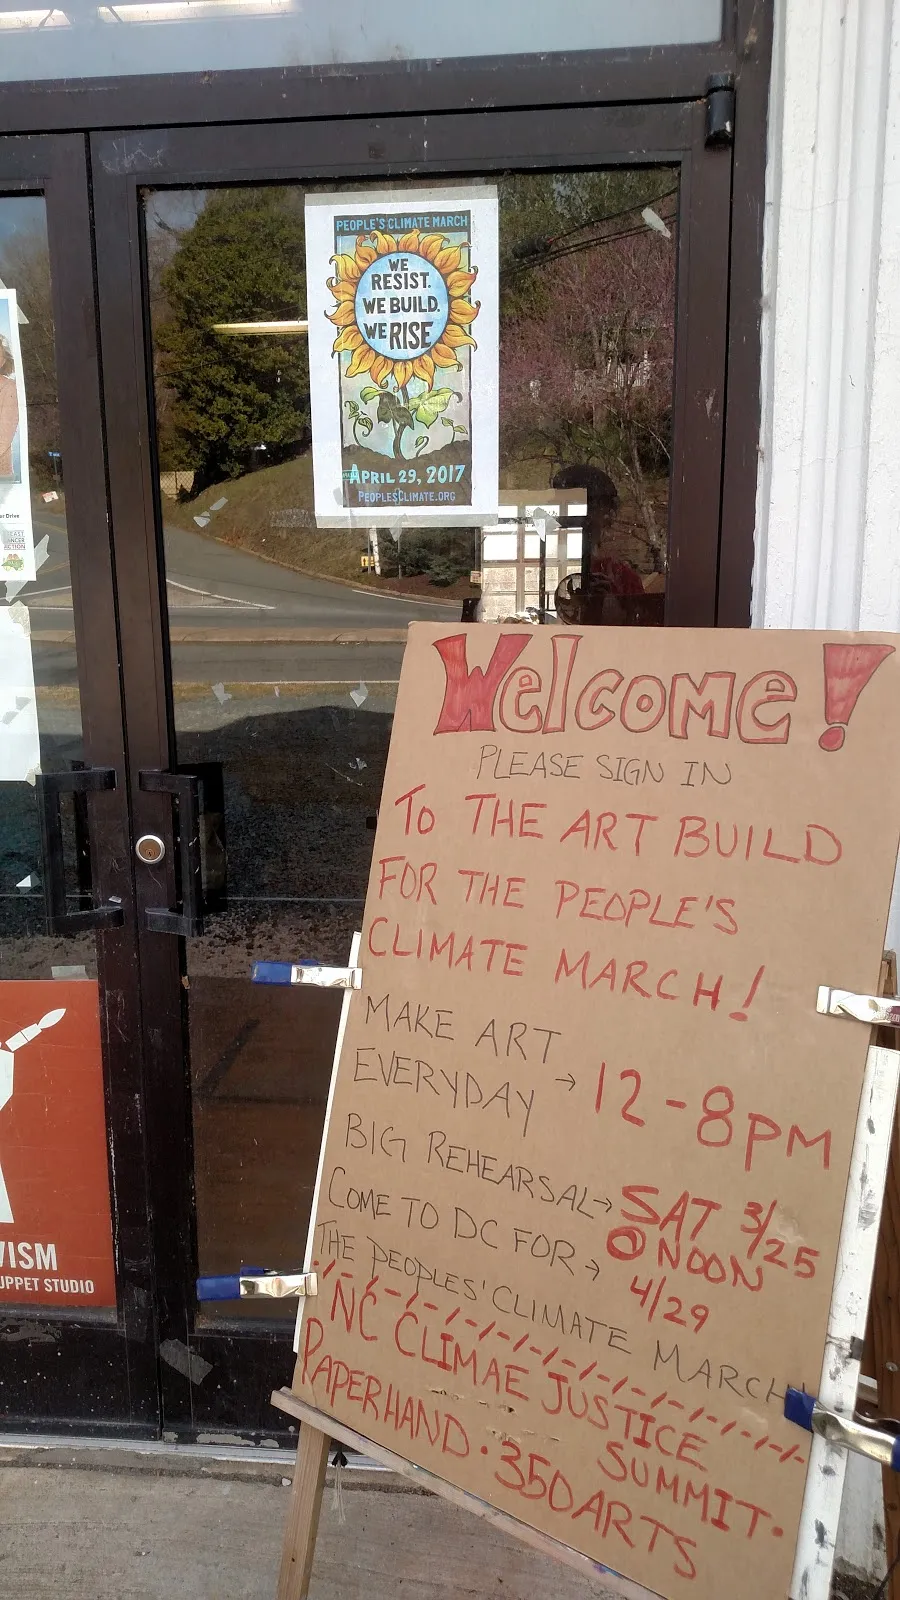 PEOPLE'S CLIMATE MARCH
WE
RESIST.
WE BUILD.
WE RISE
APRIL 29, 2017
PEOPLESCLIMATE.ORG
Welcome!
PLEASE SIGN IN
TO THE ART BUILD
FOR THE PEOPLE'S
CLIMATE MARCH!
MAKE ART
EVERYDAY → 12-8PM
BIG REHEARSAL → SAT 3/25
@ NOON
COME TO DC FOR → 4/29
THE PEOPLES' CLIMATE MARCH!
NC CLIMAE JUSTICE
SUMMIT.
PAPERHAND. 350 ARTS
Drive
ACTION
VISM
UPPET STUDIO